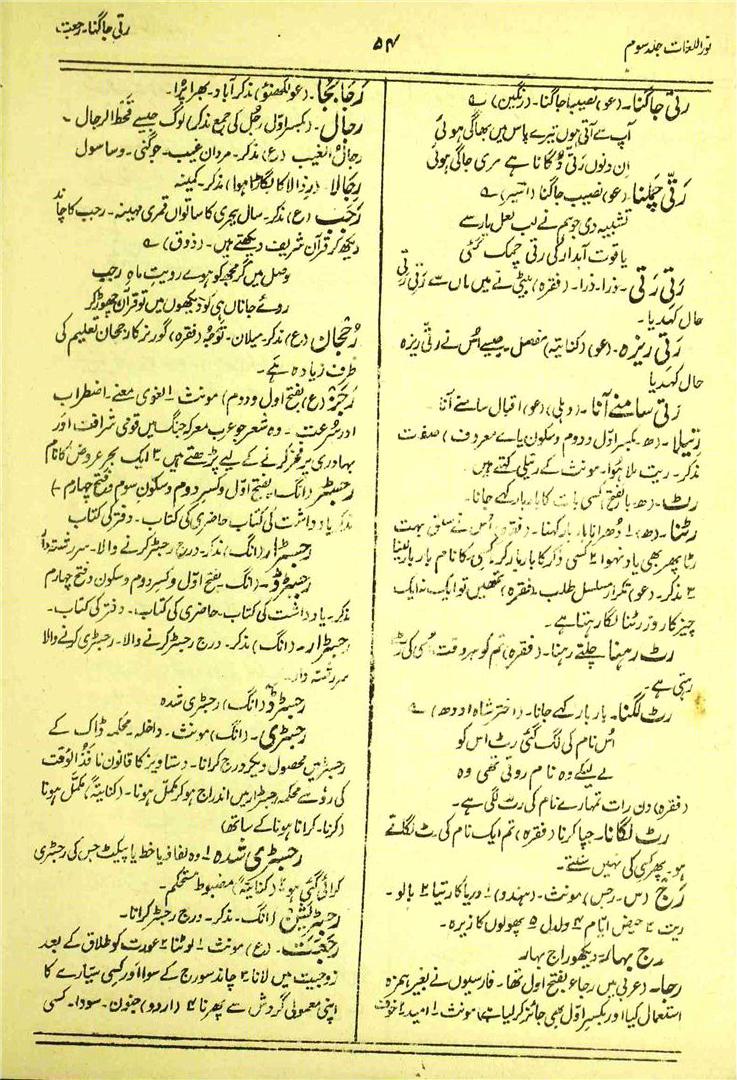 نور اللغات جلد سوم
۵۴
رتی جاگنا۔ رجعت
رتی جاگنا۔ (عو) نصیب جاگنا۔ (رنگین) ؎
آپ سے آتی ہوں تیرے پاس میں بھاگی ہوئی
ان دنوں رتی دُگانا ہے مری جاگی ہوئی
رتی چمکنا (عو) نصیب جاگنا (اسیر) ؎
تشبیہ دی جو ہم نے لب لعل یار سے
یاقوت آبدار کی رتی چمک گئی
رتی رتی۔ ذرا۔ ذرا۔ (فقرہ) بیٹی نے میں ماں سے رتی رتی
حال کہدیا۔
رتی ریزہ۔ (عو) (کنایتہ) مفصل۔ جیسے اُس نے رتی ریزہ
حال کہدیا
رتی سامنے آنا۔ (دہلی) (عو) اقبال سامنے آنا
رتیلا۔ (ھ۔ بکسر اوّل و دوم و سکون یاے معروف) صفت
مذکر۔ ریت ملا ہوا۔ مونث کے رتیلی کہتے ہیں۔
رٹ۔ (ھ۔ بالفتح) کسی بات کا بار بار کہے جانا۔
رٹنا۔ (ھ) ۱ دُھرانا بار بار کہنا۔ (فقرہ) اُس نے سبق بہت
رٹا پھر بھی یاد نہوا ۲ کسی ذکر کا بار بار کرنا کسی کا نام بار بار لینا
۳ مذکر۔ (عو) تکرار مسلسل طلب (فقرہ) تمھیں تو ایک نہ ایک
چیز کا روز رٹنا لگا رہتا ہے۔
رٹ رہنا چلتے رہنا۔ (فقرہ) تم کو ہر وقت اسی کی رٹ
رہتی ہے۔
رٹ لگنا۔ بار بار کہے جانا۔ (اختر شاہ اودھ) ؎
اُس نام کی لگ گئی رٹ اس کو
بے لیکے وہ نام روتی تھی وہ
(فقرہ) دن رات تمہارے نام کی رٹ لگی ہے۔
رٹ لگانا۔ جپا کرنا (فقرہ) تم ایک نام کی رٹ لگاتے
ہو۔ پھر کسی کی نہیں سنتے۔
رج (س۔ رجس) مونث۔ (ہندو) ۱ دریا کا ریتا ۲ بالو۔
ریت ۳ حیض ایام ۴ ولدل ۵ پھولوں کا زیرہ۔
رج بہار۔ دیکھو راج بہار
رجا۔ (عربی میں رجاء بفتح اول تھا۔ فارسیوں نے بغیر ہمزہ
استعمال کیا اور بکسر اول بھی جائز کر لیا ہے) مونث۔ ۱ امید ۲ خوف
رجا بجا۔ (عو لکھنؤ) مذکر آباد۔ بھرا پُرا۔
رجال۔ (بکسر اوّل رجل کی جمع مذکر) لوگ جیسے قحط الرجال۔
رجال الغیب (ع) مذکر۔ مردان غیب۔ جوگنی۔ وساسول
رجالا۔ (رذالا کا بگاڑا ہوا) مذکر۔ کمینہ
رجب (ع) مذکر۔ سال ہجری کا ساتواں قمری مہینہ۔ رجب کا چاند
دیکھ کر قرآن شریف دیکھتے ہیں۔ (ذوق) ؎
وصل میں گر مجھ کو ہووے رویت ماہِ رجب
روئے جاناں ہی کو دیکھوں میں تو قرآن چھوڑ کر
رُجحان (ع) مذکر۔ میلان۔ توجہ (فقرہ) گورنر کا رجحان تعلیم کی
طرف زیادہ ہے۔
رجز (ع) (بفتح اول و دوم) مونث ۱ لغوی معنے۔ اضطراب
اور سُرعت۔ وہ شعر جو عرب معرکہ جنگ میں قومی شرافت اور
بہادری پر فخر کرنے کے لیے پڑھتے ہیں ۲ ایک بحر عروض کا نام
رجسٹر (انگ۔ بفتح اوّل و کسر دوم و سکون سوم و فتح چہارم۔)
مذکر یادداشت کی کتاب حاضری کی کتاب۔ دفتر کی کتاب
رجسٹرار (انگ) مذکر۔ درج رجسٹر کرنے والا۔ سررشتہ دار
رجسٹرڈ۔ انگ۔ بفتح اوّل و کسر دوم و سکون و فتح چہارم
مذکر۔ یادداشت کی کتاب۔ حاضری کی کتاب۔ دفتر کی کتاب۔
رجسٹرار۔ (انگ) مذکر۔ درج رجسٹر کرنے والا۔ رجسٹری کرنے والا
سررشتہ دار۔
رجسٹرڈ (انگ) رجسٹری شدہ
رجسٹری۔ (انگ) مونث۔ داخلہ۔ محکمہ ڈاک کے
رجسٹر میں محصول دیکر درج کرانا۔ دستاویز کا قانون نافذ الوقت
کی رو سے محکمہ رجسٹرار میں اندراج ہو کر مکمل ہونا۔ (کنایتہً) مکمل ہونا
(کرنا۔ کرانا ہونا کے ساتھ)
رجسٹری شدہ ۱ وہ لفافہ یا خط یا پیکٹ جس کی رجسٹری
کرائی گئی ہو ۲ (کنایتہً) مضبوط مستحکم۔
رجسٹریشن (انگ۔ مذکر۔ درج رجسٹر کرانا۔
رجعت۔ (ع) مونث ۱ لوٹنا ۲ عورت کو طلاق کے بعد
زوجیت میں لانا ۳ چاند سورج کے سوا اور کسی سیّارے کا
اپنی معمولی گردش سے پھرنا ۴ (اردو) جنون۔ سودا۔ کسی